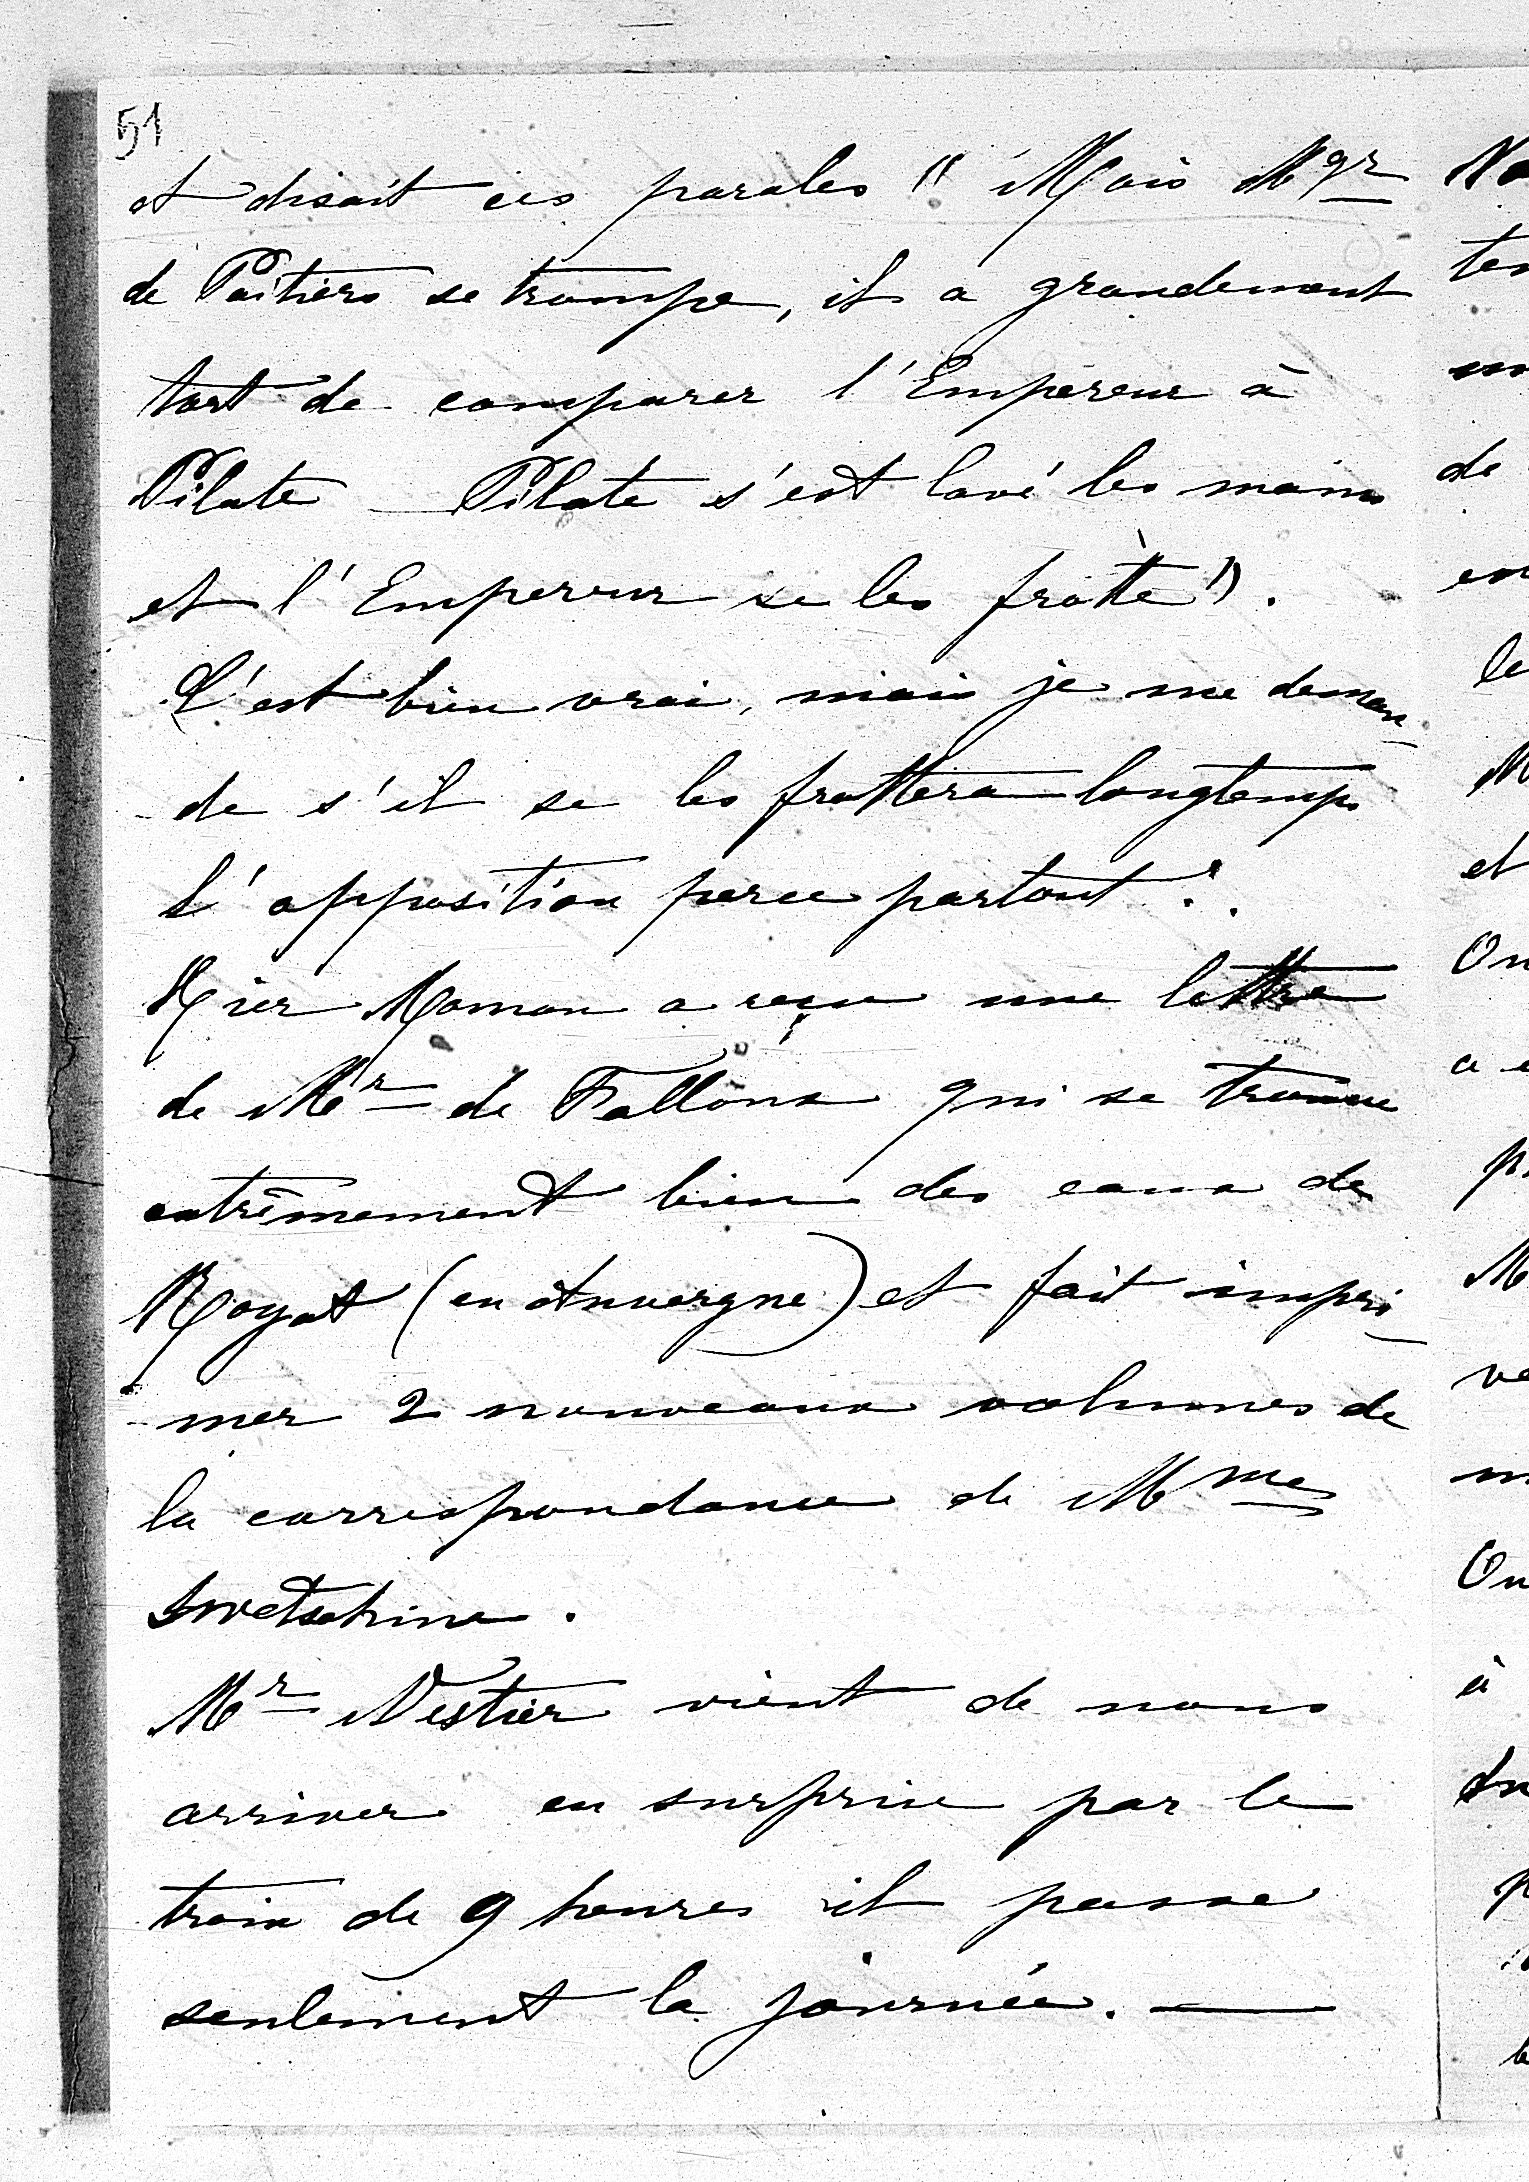 51
et disait ces paroles " Mais Mgr
de Poitiers se trompe, il a grandement
tort de comparer l'Empereur à
Pilate _ Pilate s'est lavé les mains
et l'Empereur se les frotte ".
C'est bien vrai, mais je me deman-
-de s'il se les frottera longtemps
L'opposition perce partout !.
Hier Maman a reçu une lettre
de Mr de Falloux qui se trouve
extrêmement bien des eaux de
Royat (en Auvergne) et fait impri-
-mer 2 nouveaux volumes de
la correspondance de Mme
Swetschine.
Mr Vestier vient de nous
arriver en surprise par le
train de 9 heures il passe
seulement la journée. —